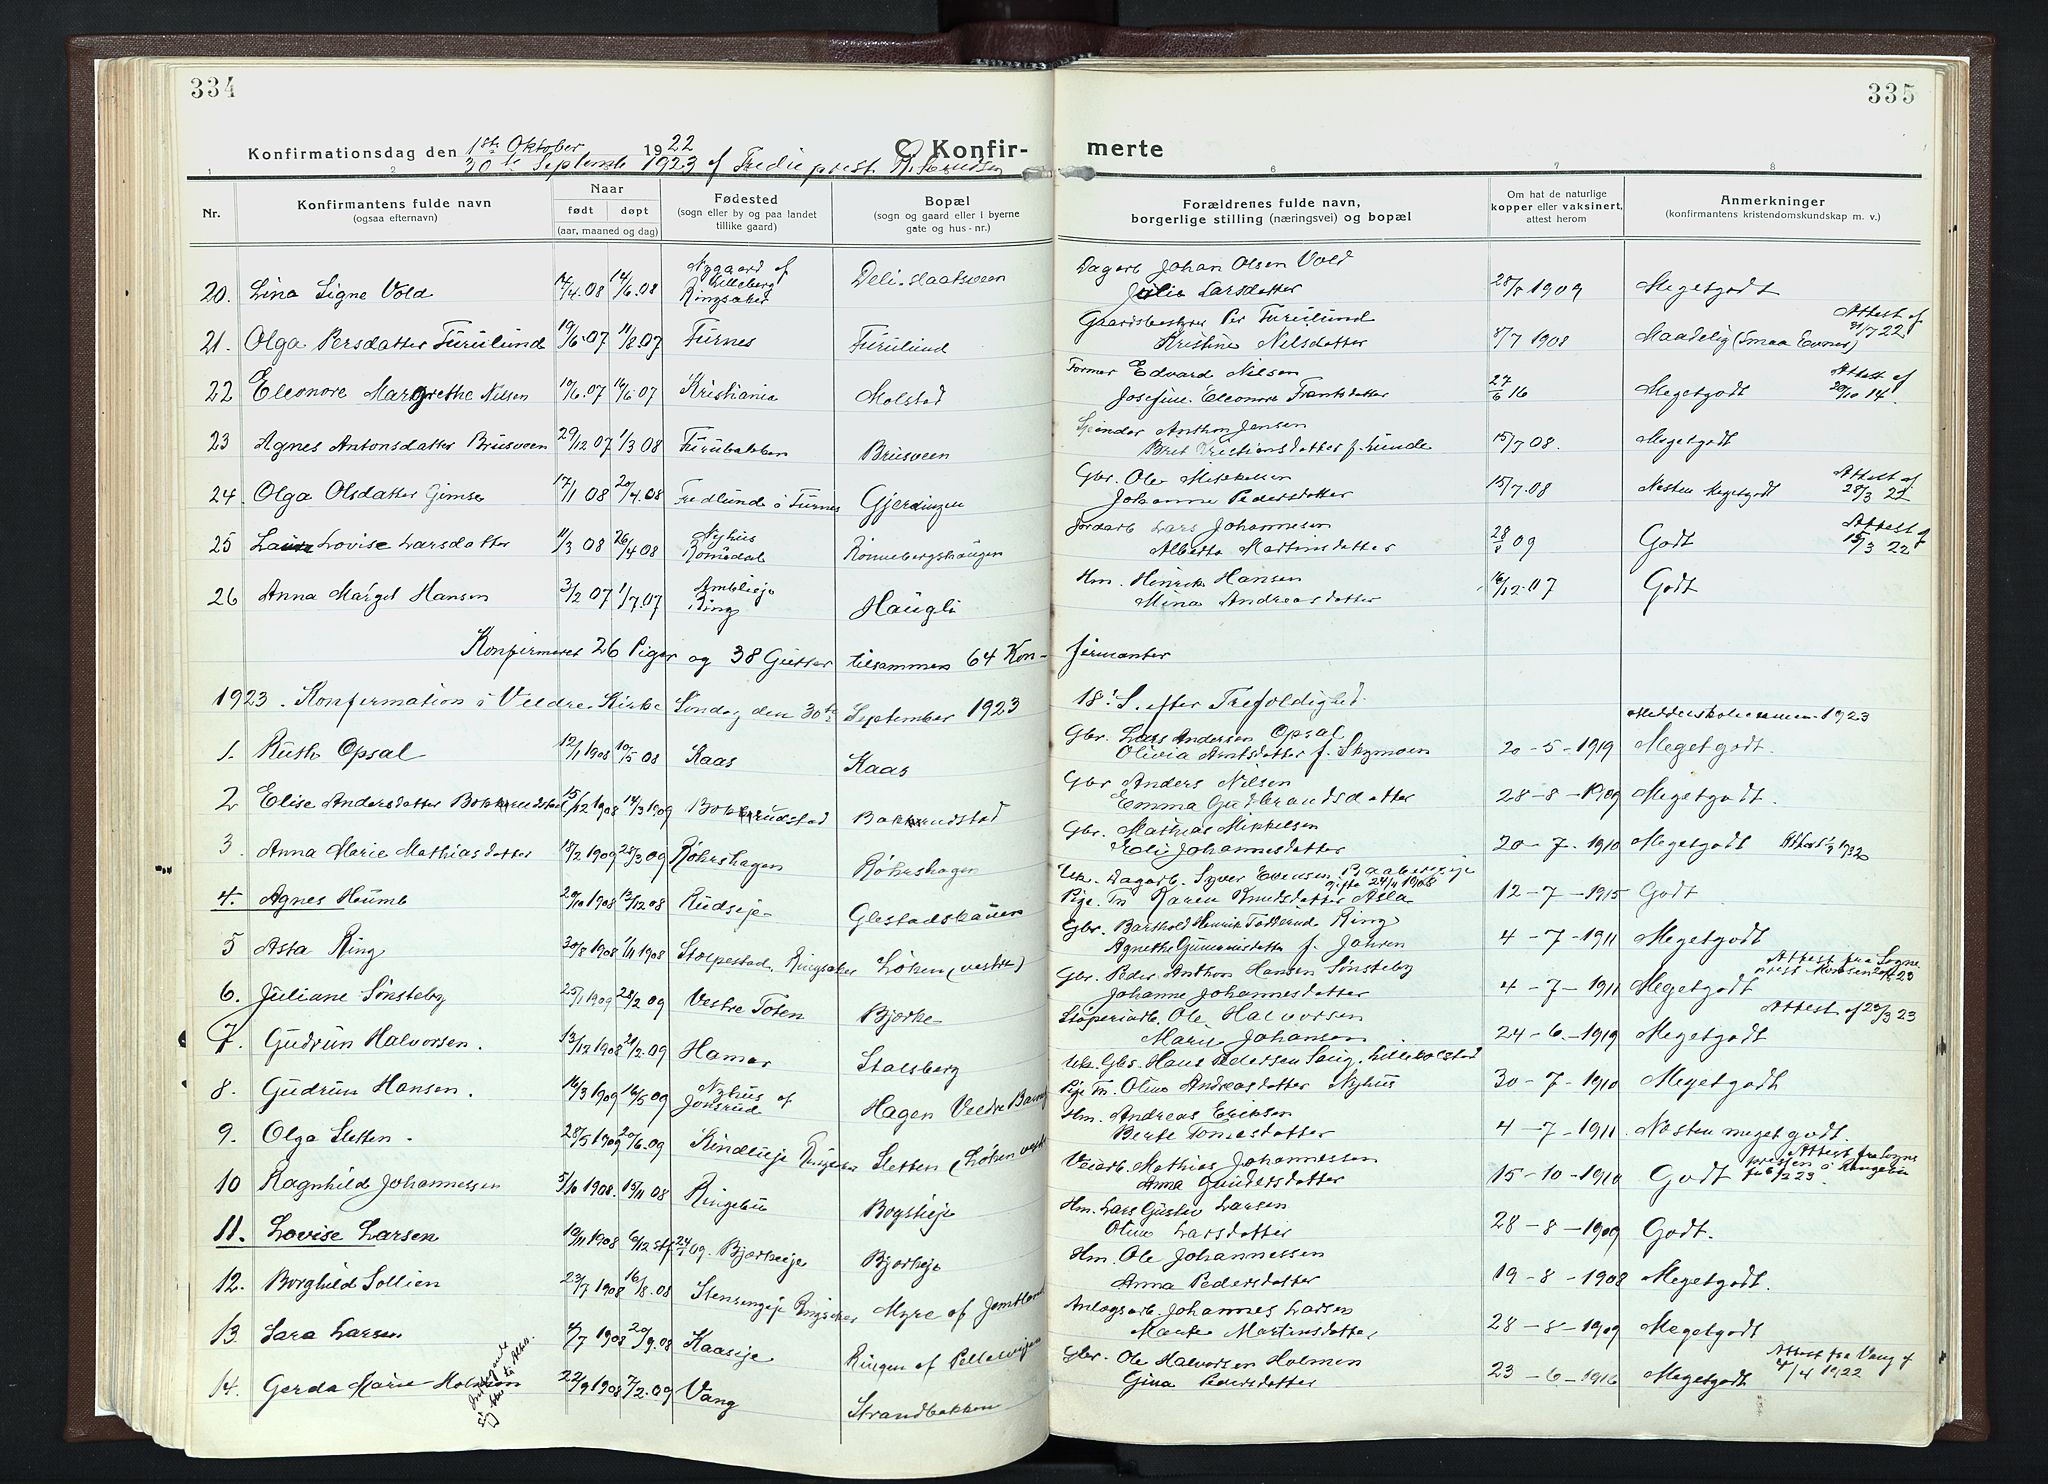 334
335
Konfirmationsdag den 1ste Oktober 1922
30te September 1923 af
C Konfir-
merte
1
2
6
7
8
Nr.
Konfirmantens fulde navn
(ogsaa efternavn)
Naar
født døpt
(aar, maaned og dag)
Fødested
(sogn eller by og paa landet
tillike gaard)
Bopæl
(sogn og gaard eller i byerne
gate og hus-nr.)
Forældrenes fulde navn,
borgerlige stilling (næringsvei) og bopæl
Om hat de naturlige
kopper eller vaksinert,
attest herom
Anmerkninger
(konfirmantens kristendomskundskap m. v.)
20. Lina Signe Vold 14/6.08 Nygaard af Lilleberg Ringsaker Dagarb Johan Olsen Vold Larsdatter 28/8 1909 Megetgodt
21. Olga Persdatter Furulund 19/6.07 11/8.07 Furnes Furulund Gaardsbestyrer Per Furulund Kristine Nilsdatter 8/7 1908 Maadelig (Smaa Evner) Attest af 21/7 22
22 Eleonore Margrethe Nilsen Kristiania Molstad Former Edvard Nilsen Josefine Eleonore Frantsdatter 27/6 16 Megetgodt Attest af 20/10 14.
23 Agnes Antonsdatter Brusveen 29/12 07 1/3 08 Furubakken Brusveen Anthon Jensen Kristiansdatter f. Lunde 15/7 08. Megetgodt
24. Olga Olsdatter Gimse 17/1 08 20/4.08 Fredlund i Furnes Gjerdingen Gbr. Ole Johanne Pedersdatter 15/7.08 Næsten Megetgodt Attest af 28/3 22
25 Lovise Larsdatter 11/3 08 26/4 08 Nyhus Romedal Rønnebergshaugen Jordarb Lars Johannesen Alberte Martinsdatter 28/8 09 Godt Attest af 15/3 22
26 Anna Marget Hansen 3/2 07 1/7.07 Ring Haugli Hm. Hinrik Hansen Mina Andreasdatter 16/12.07 Godt
Konfirmeret 26 Piger og 38 Gutter tilsammen 64 Kon-
firmanter
1923. Konfirmation i Veldre Kirke Søndag den 30te September 1923 18. S. efter Trefoldighed.
1. Ruth Opsal 12/1 1908 10/5 08 Kaas Kaas Gbr. Lars Andersen Opsal Olivia Arntsdatter f. Skymoen 20-5-1919 Megetgodt. Middelskoleeksamen 1923
2 Elise Andersdatter 15/12 1908 14/3 1909 Gbr Anders Nilsen Emma Gudbrandsdatter 28-8-1909 Megetgodt.
3. Anna Marie Mathiasdatter 18/2 1909 28/3 09 Røhrshagen Røhrshagen Gbr. Mathias Mikkelsen Eli Johannesdatter 20-7-1910 Megetgodt
4. Agnes Haumb 20/10 1908 13/12 08 Rudseje Glestadshauen Uek. Dagarb. Syver Evensen gifte 24/11 1908 Pige Tn Karen Knudsdatter Asla 12-7-1915 Godt
5 Asta Ring 30/8 1908 1/11 1908 Stolpestad, Ringsaker Løken (vestre) Gbr. Barthold Henrik Ring Agnethe Gunnarsdatter f. Jahren 4-7-1911 Megetgodt
6. Juliane Sønsteby 25/1 1909 28/2 09 Vestre Toten Bjørke Gbr. Peder Anthon Hansen Sønsteby Johanne Johannesdatter 4-7-1911 Megetgodt Attest fra Sogneprest
7. Gudrun Halvorsen. 13/12 1908 Hamar Stalsberg Støperiarb. Ole Halvorsen Marie Johansen 24-6-1919 Megetgodt Attest af 23/3 23
8. Gudrun Hansen. 16/3 1909 16/5 09 Nyhus af Jonsrud Hagen Veldre Uek. Gbr. Hans Pedersen Saug, Lilleholstad Pige Tn. Oline Andreasdatter Nyhus 30-7-1910 Megetgodt
9. Olga Sletten. 28/5 1909 20/6.09 Kindlieje Ringsaker Sletten (Løken vestre Hm. Andreas Eriksen Berte Tomesdatter 4-7-1911. Næsten meget godt.
10 Ragnhild Johannessen 5/10 1908. 15/11 08 Ringebu Bogstieje Veiarb. Mathias Johannessen Anna Gundersdatter 15-10-1910 Godt Attest fra Sognepresten i Ringebu
11. Lovise Larsen 19/11 1908 6/12 stf 24/1 09. Bjørkeje Bjørkeje Hm. Lars Gustav Larsen Oline Larsdatter 28-8-1909 Godt.
12. Borghild Sollien 23/7 1908 16/8.08 Stenrengeje Ringsaker Myre af Jemtland Hm. Ole Johannessen Anna Pedersdatter 19-8-1908 Megetgodt.
13. Sara Larsen 4/7 1908 20/9.08 Kaaseje Ringen af Anlægsarb. Johannes Larsen Marte Martinsdatter 28-8-1909 Megetgodt
14. Gerda Marie Holmen 22/9 1908 7/2.09 Vang Strandbakken Gbr. Ole Halvorsen Holmen Gina Pedersdatter 23-6-1916 Megetgodt Attest fra Vang af 4/4 1922